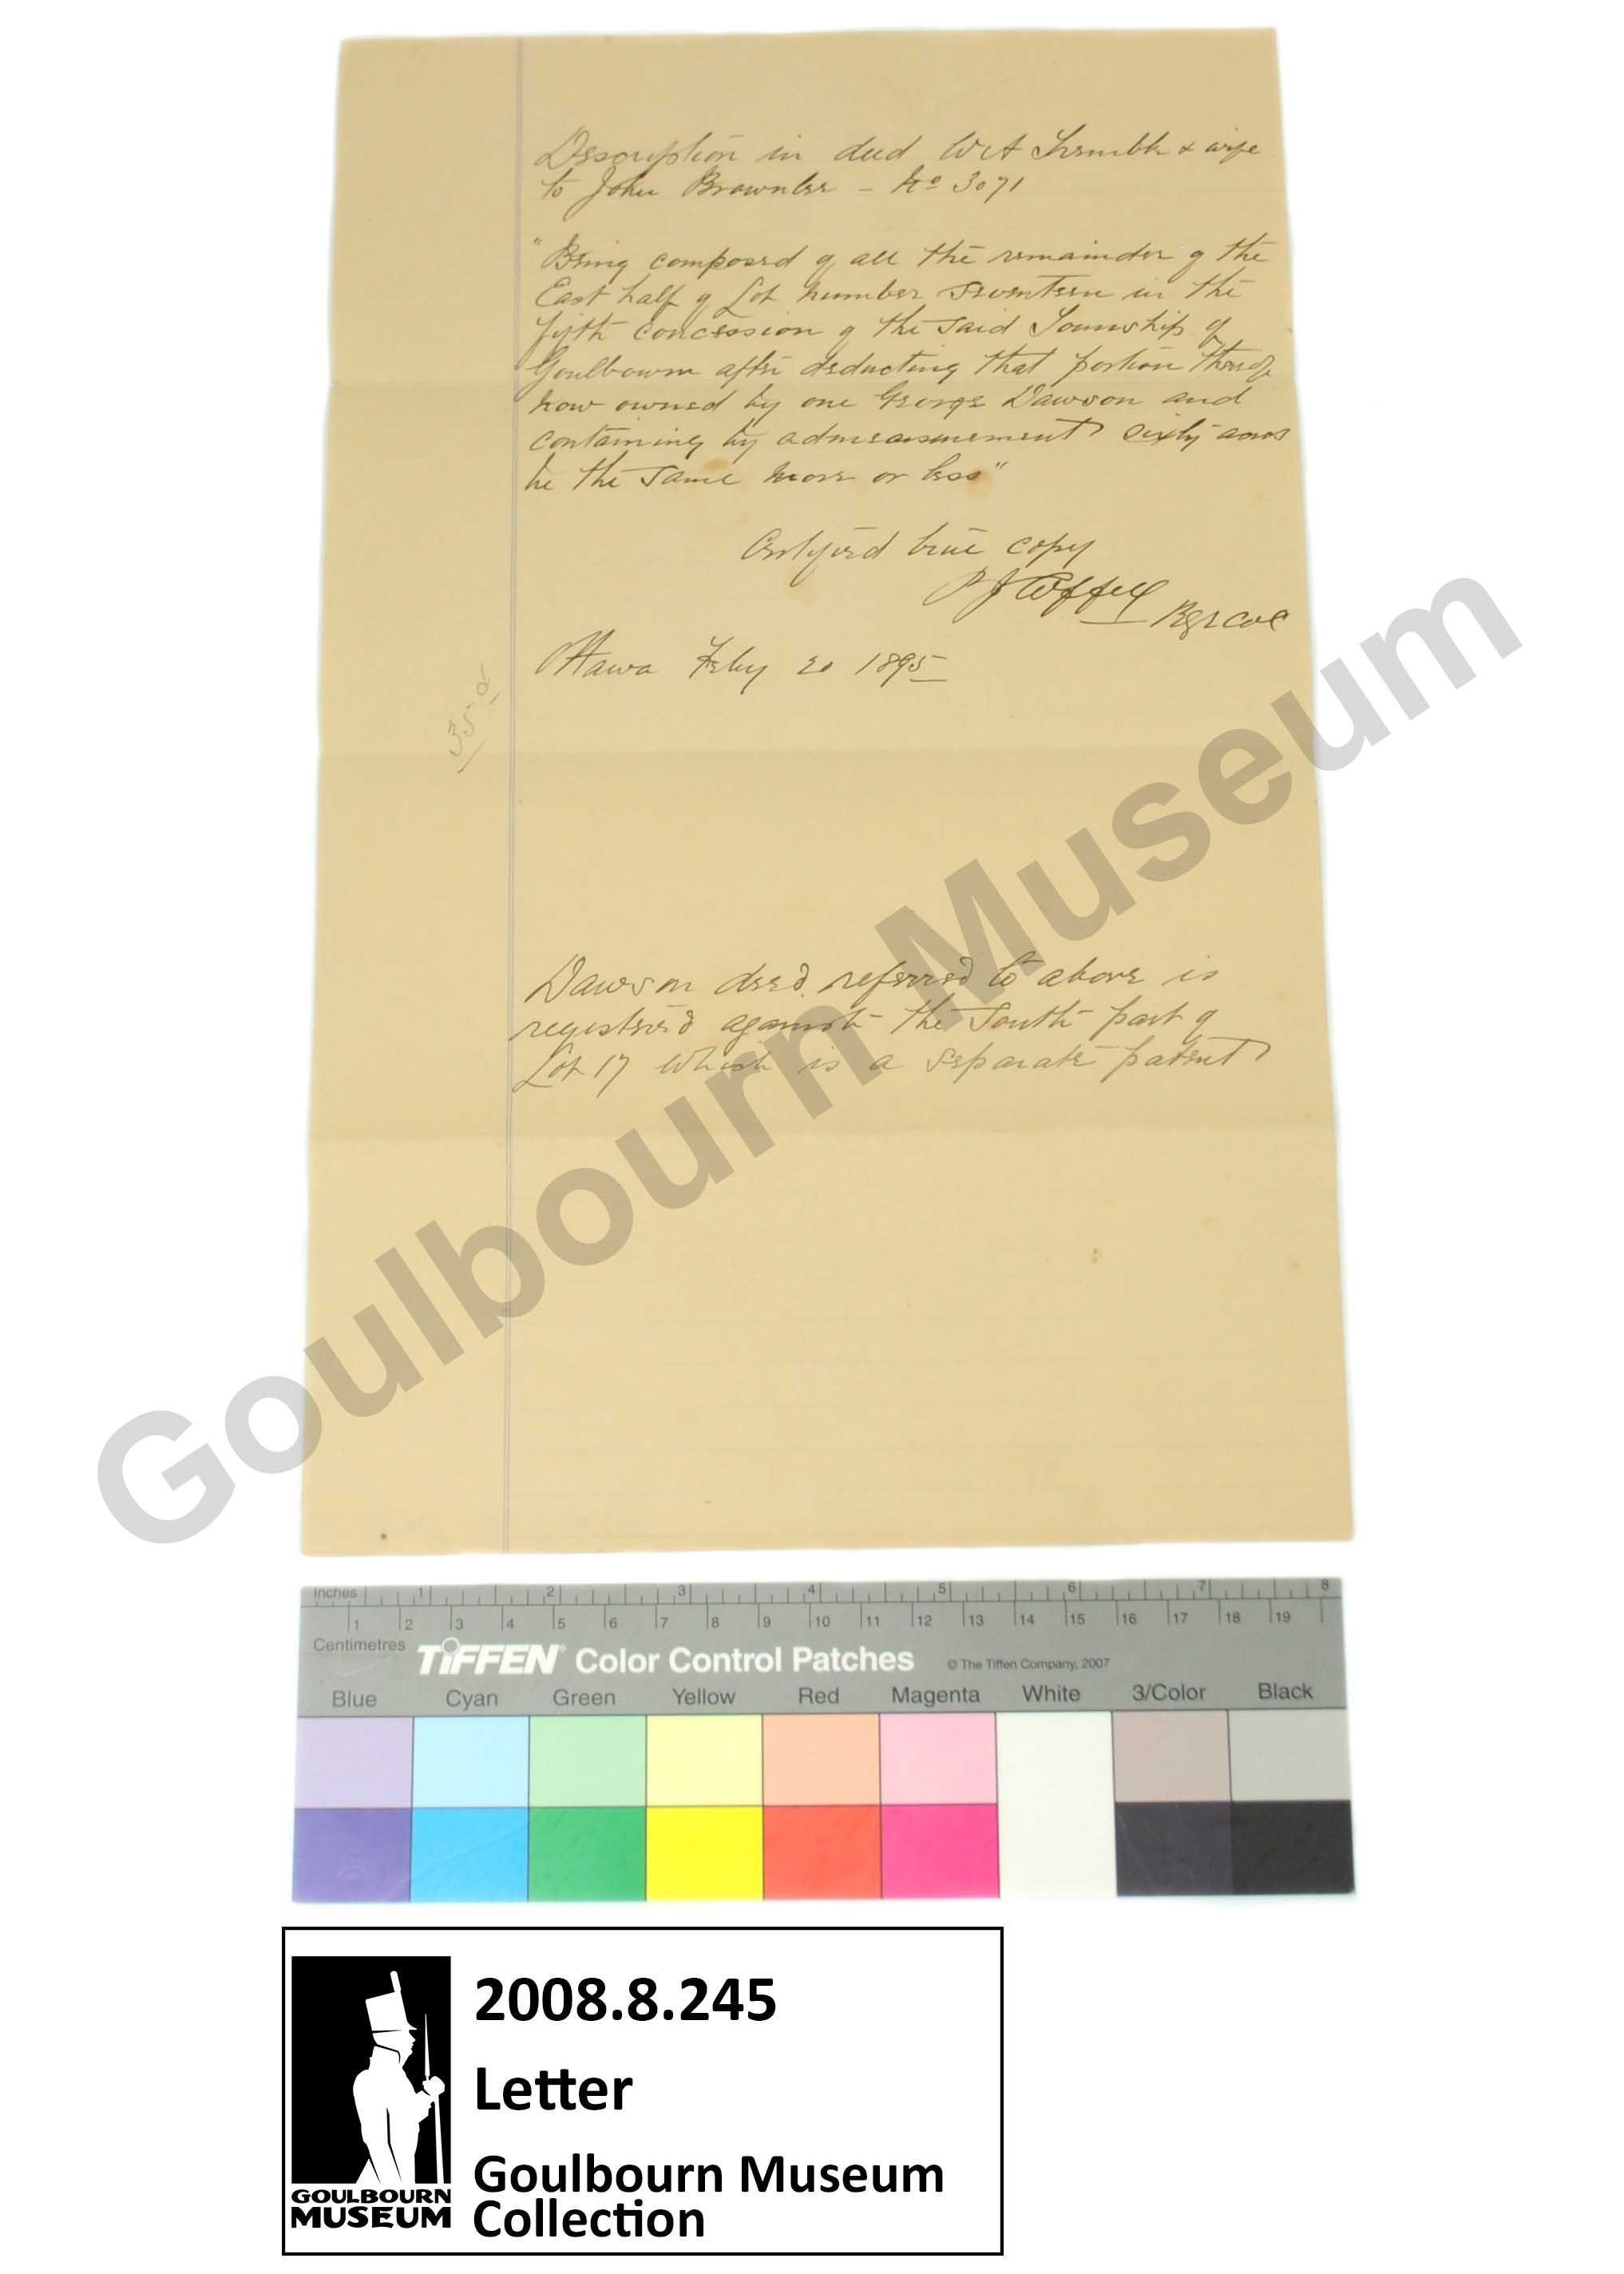 Description in deed W A Tremble & wife
to John Brownlee - No 3071
"Being composed of all the remainder of the
East half of Lot number seventeen in the
fifth concession of the said Township of
Goulbourn after deducting that portion thereof
now owned by one George Dawson and
containing by admeasurement sixty acres
be the same more or less"
Certified true copy
P J Coffey
Ottawa Feby 20 1895
35
Dawson deed referred to above is
registered against the South part of
Lot 17 which is a separate patent
Goulbourn Museum
Inches 1 2 3 4 5 6 7 8
1 2 3 4 5 6 7 8 9 10 11 12 13 14 15 16 17 18 19
Centimetres
TIFFEN® Color Control Patches © The Tiffen Company, 2007
Blue Cyan Green Yellow Red Magenta White 3/Color Black
2008.8.245
Letter
Goulbourn Museum
Collection
GOULBOURN
MUSEUM